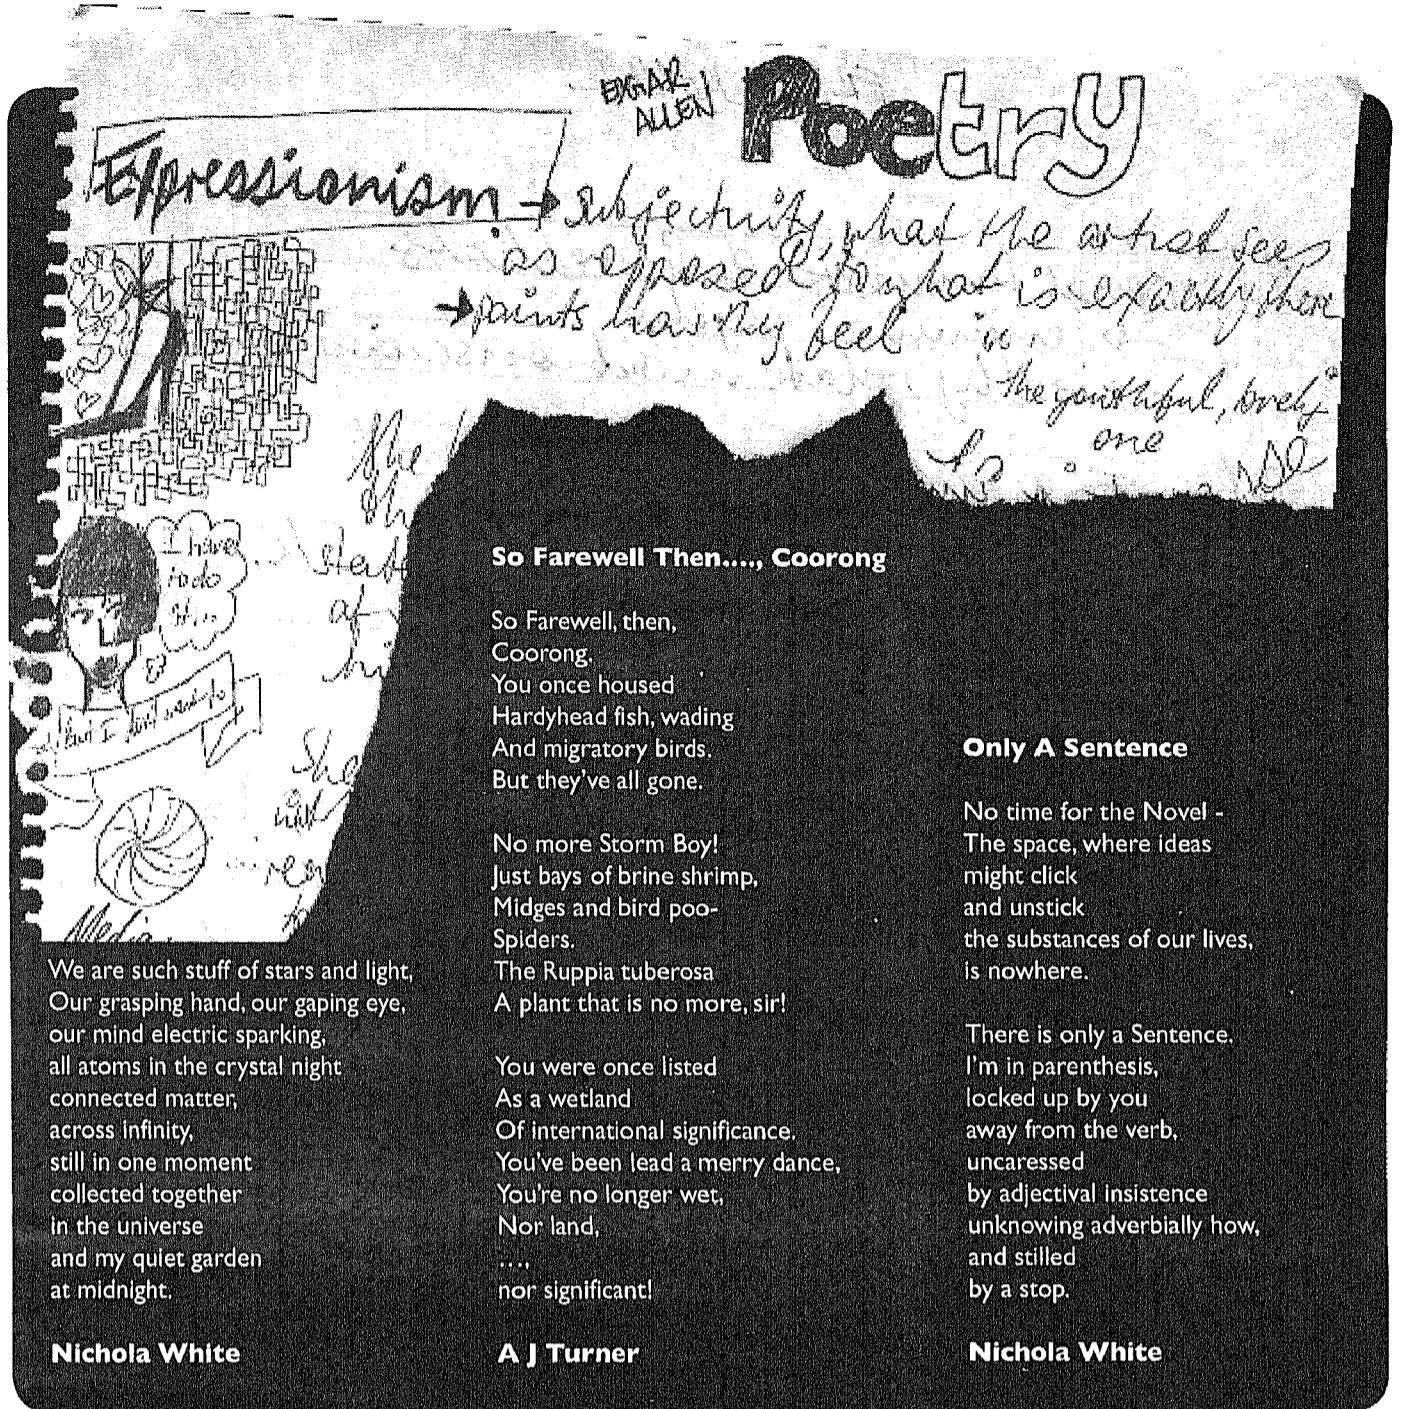 EDGAR
ALLEN
Poetry
Expressionism → subjectivity, what the artist sees
as opposed to what is exactly there
→ paints how they feel
the youthful, lovely
one
She
I have
to do
it...
But I don't want to
start
at
hi
She
Media
We are such stuff of stars and light,
Our grasping hand, our gaping eye,
our mind electric sparking,
all atoms in the crystal night
connected matter,
across infinity,
still in one moment
collected together
in the universe
and my quiet garden
at midnight.
Nichola White
So Farewell Then...., Coorong
So Farewell, then,
Coorong.
You once housed
Hardyhead fish, wading
And migratory birds.
But they've all gone.
No more Storm Boy!
Just bays of brine shrimp,
Midges and bird poo-
Spiders.
The Ruppia tuberosa
A plant that is no more, sir!
You were once listed
As a wetland
Of international significance.
You've been lead a merry dance,
You're no longer wet,
Nor land,
....,
nor significant!
A J Turner
Only A Sentence
No time for the Novel -
The space, where ideas
might click
and unstick
the substances of our lives,
is nowhere.
There is only a Sentence.
I'm in parenthesis,
locked up by you
away from the verb,
uncaressed
by adjectival insistence
unknowing adverbially how,
and stilled
by a stop.
Nichola White